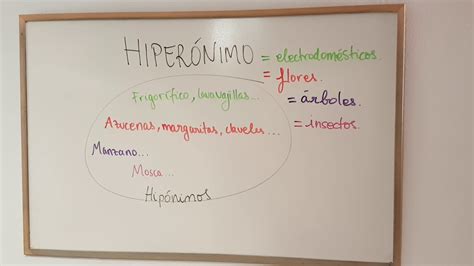 HIPERÓNIMO = electrodomésticos.
= flores.
Frigorífico, lavavajillas...
= árboles.
Azucenas, margaritas, claveles...
= insectos.
Manzano...
Mosca...
Hipónimos